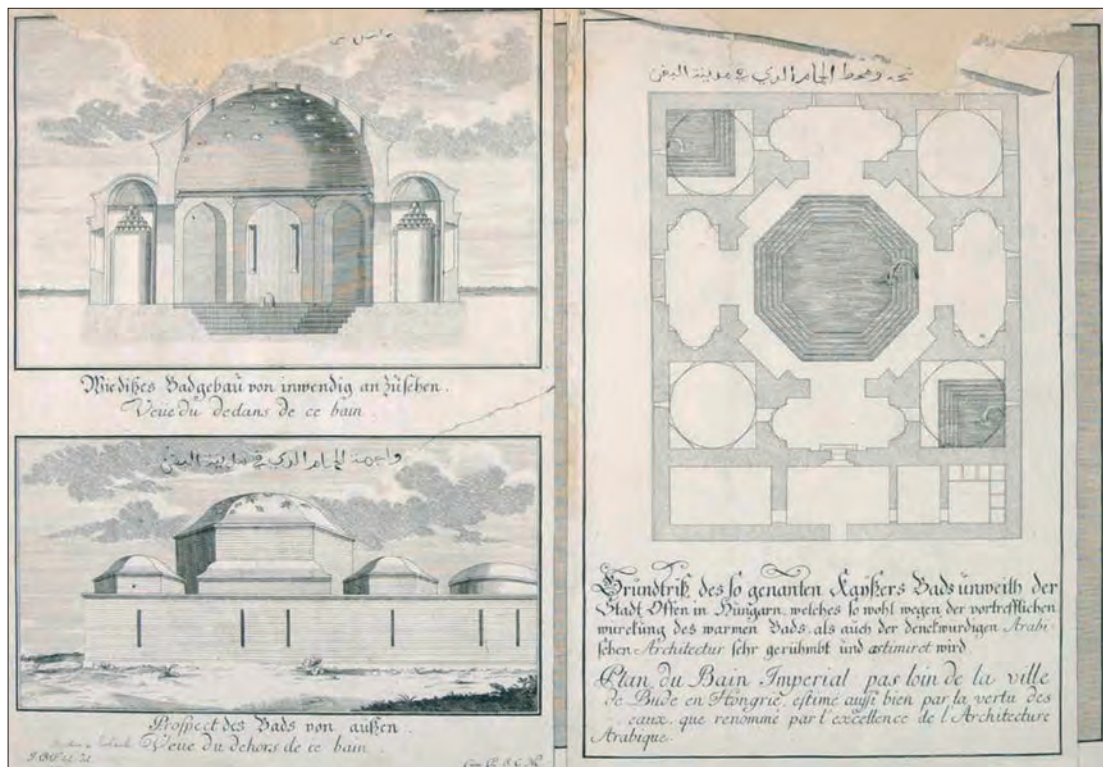 Wie dißes Badgebaü von inwendig an züsehen.
Veüe du dedans de ce bain.
واجهة الحمام الدي في مدينة
Prospect des Bads von außen.
Veue du dehors de ce bain.
الحمام الدي في مدينة
Gründtriß des so genanten Kaÿßers Bads ünweith der
Stadt Offen in Hüngarn, welches so wohl wegen der vortrefflichen
würckung des warmen Bads, als auch der denckwürdigen Arabi-
schen Architectur sehr gerühmbt und æstimiret wird.
Plan du Bain Imperial pas loin de la ville
de Bude en Hongrie, estimé aussi bien par la vertu des
eaux, que renommé par l'excellence de l'Architecture
Arabique.